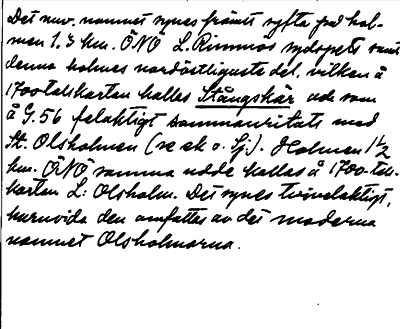 Det nuv. namnet synes främst syfta på hol-
men 1.3 km. ÖNÖ L. Rimmös sydspets samt
denna holmes nordöstligaste del, vilken å
1700talskartan kallas Stångskär och som
å G.56 felaktigt sammanritats med
St. Olsholmen (se ek o. Sj.). Holmen 1 1/2
km. ÖNÖ samma udde kallas å 1700-tals-
kartan L: Olsholm. Det synes tvivelaktigt,
huruvida den omfattes av det moderna
namnet Olsholmarna.